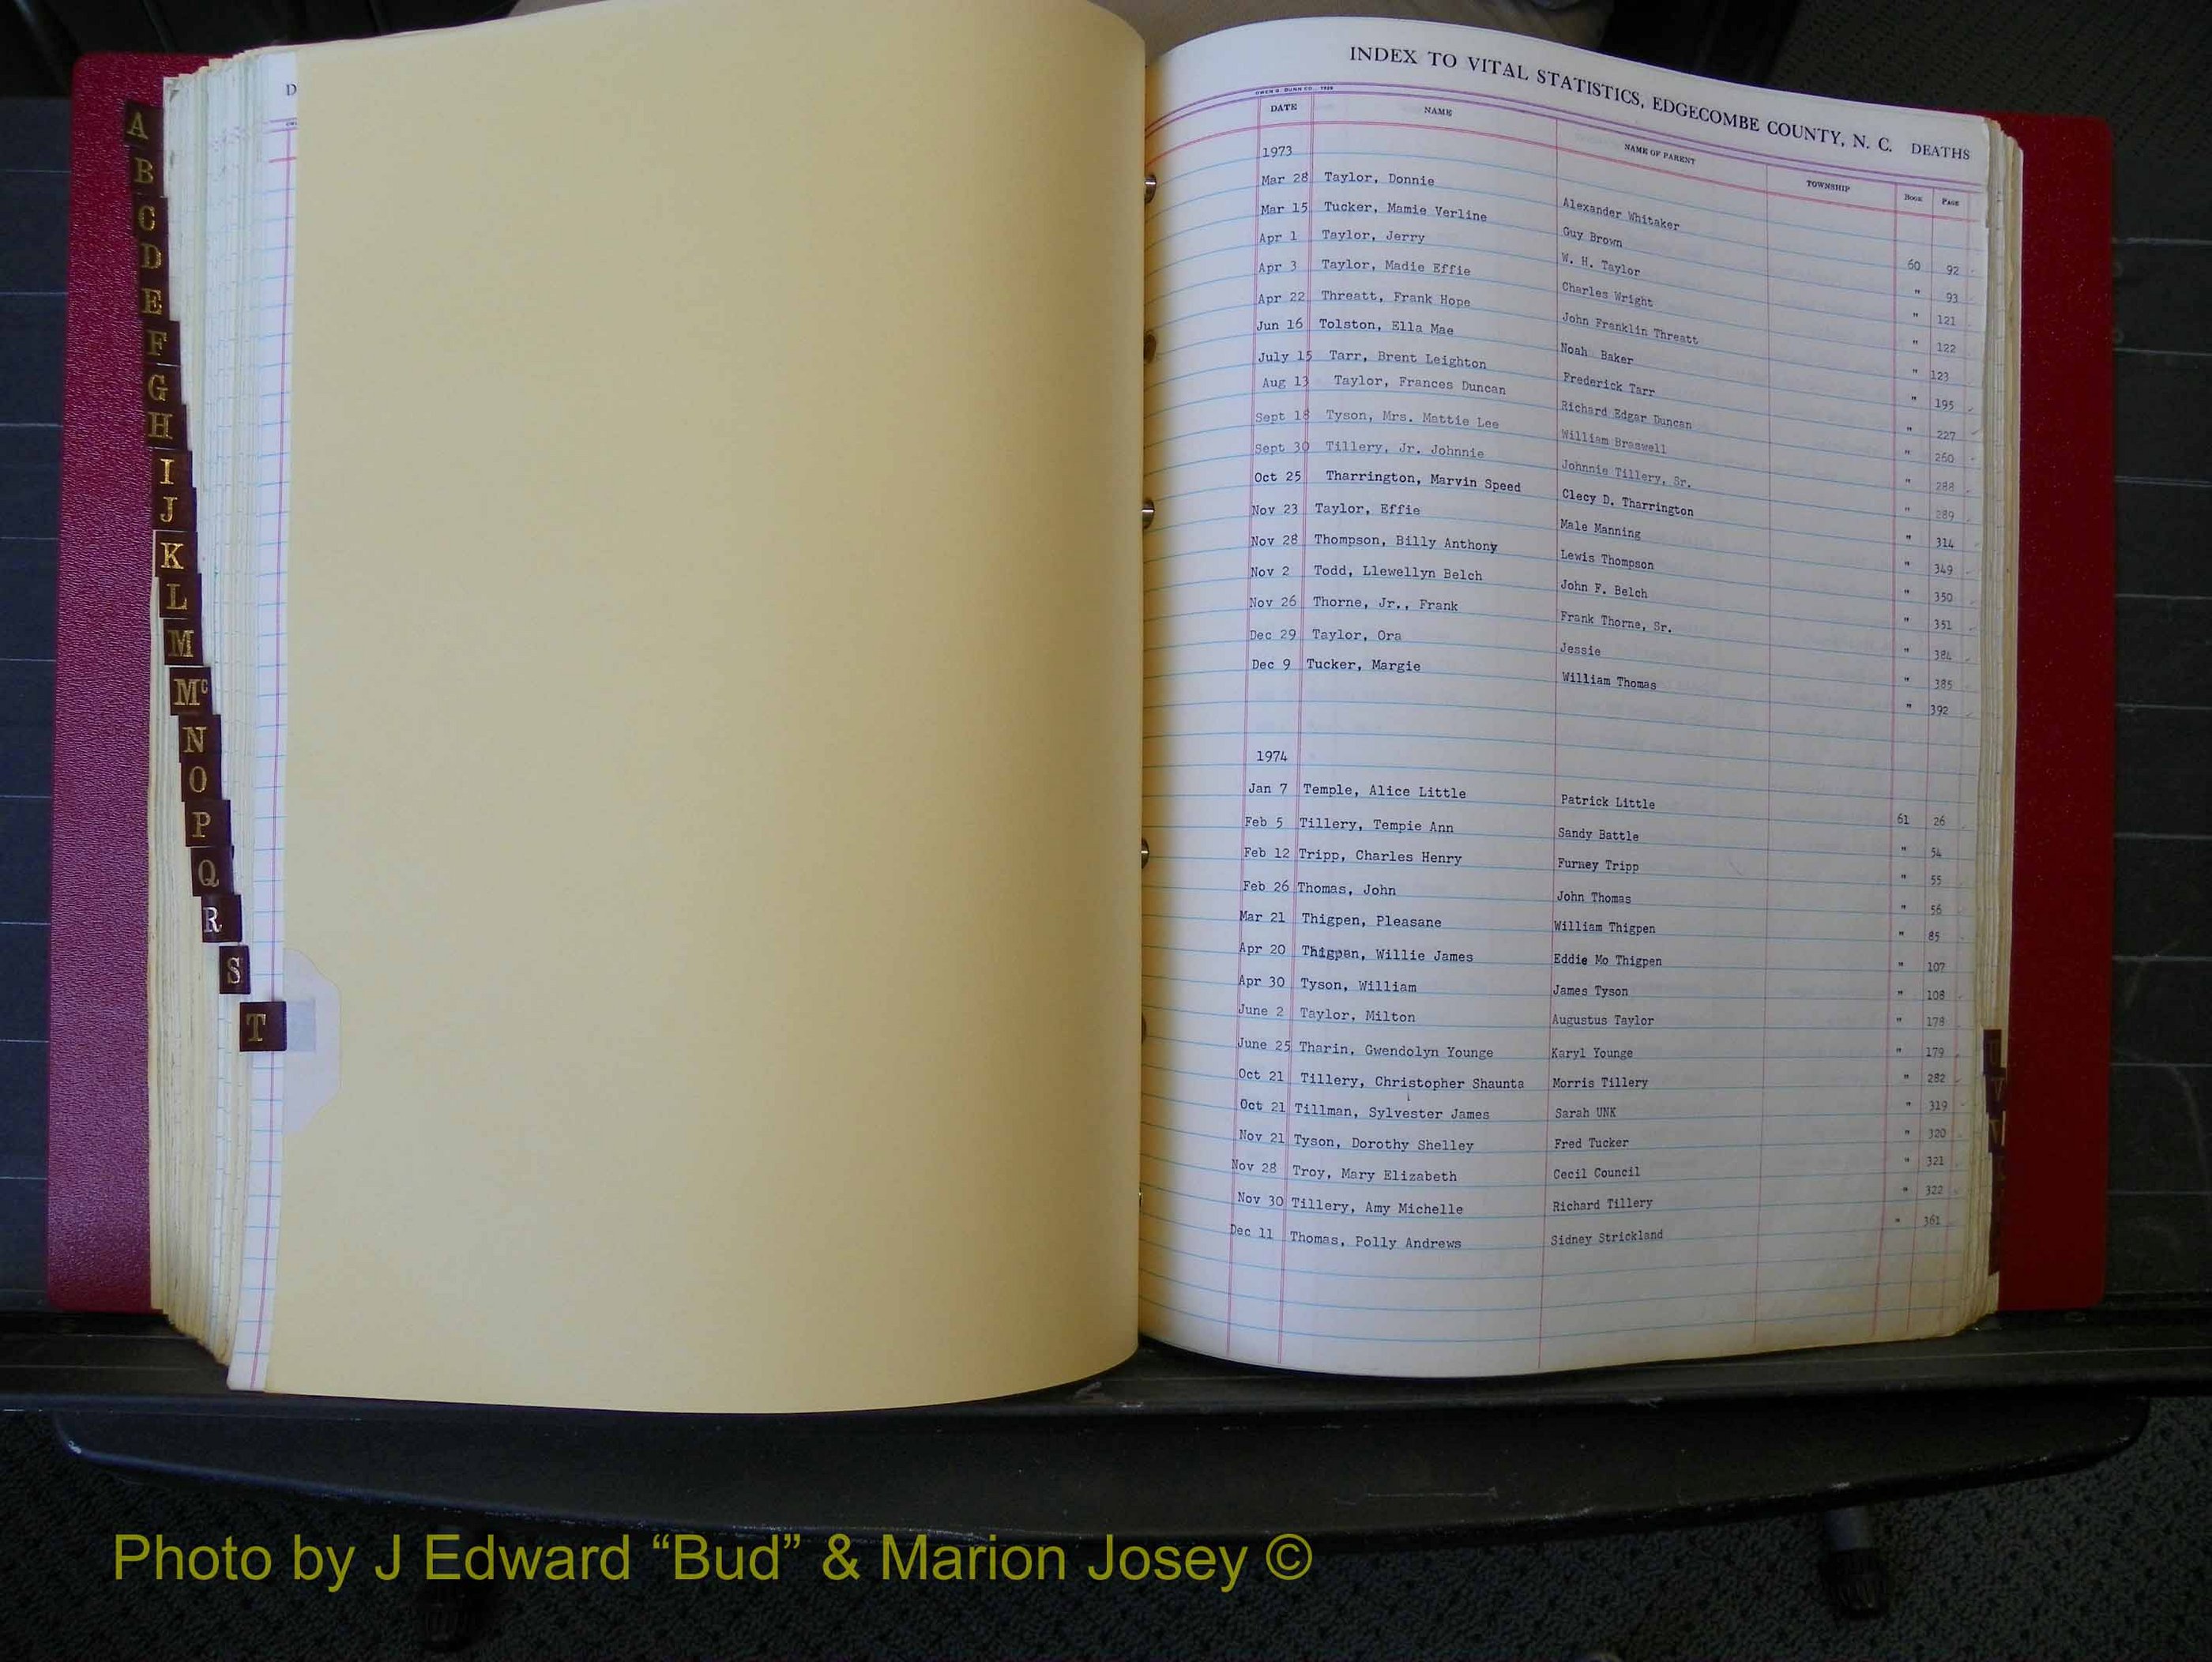 INDEX TO VITAL STATISTICS, EDGECOMBE COUNTY, N. C. DEATHS
OWEN G. DUNN CO.
DATE NAME NAME OF PARENT TOWNSHIP BOOK PAGE
1973
Mar 28 Taylor, Donnie Alexander Whitaker 60 92
Mar 15 Tucker, Mamie Verline Guy Brown " 93
Apr 1 Taylor, Jerry W. H. Taylor " 121
Apr 3 Taylor, Madie Effie Charles Wright " 122
Apr 22 Threatt, Frank Hope John Franklin Threatt " 123
Jun 16 Tolston, Ella Mae Noah Baker " 195
July 15 Tarr, Brent Leighton Frederick Tarr " 227
Aug 13 Taylor, Frances Duncan Richard Edgar Duncan " 260
Sept 18 Tyson, Mrs. Mattie Lee William Braswell " 288
Sept 30 Tillery, Jr. Johnnie Johnnie Tillery, Sr. " 289
Oct 25 Tharrington, Marvin Speed Clecy D. Tharrington " 314
Nov 23 Taylor, Effie Male Manning " 349
Nov 28 Thompson, Billy Anthony Lewis Thompson " 350
Nov 2 Todd, Llewellyn Belch John F. Belch " 351
Nov 26 Thorne, Jr., Frank Frank Thorne, Sr. " 384
Dec 29 Taylor, Ora Jessie " 385
Dec 9 Tucker, Margie William Thomas " 392
1974
Jan 7 Temple, Alice Little Patrick Little 61 26
Feb 5 Tillery, Tempie Ann Sandy Battle " 54
Feb 12 Tripp, Charles Henry Furney Tripp " 55
Feb 26 Thomas, John John Thomas " 56
Mar 21 Thigpen, Pleasane William Thigpen " 85
Apr 20 Thigpen, Willie James Eddie Mo Thigpen " 107
Apr 30 Tyson, William James Tyson " 108
June 2 Taylor, Milton Augustus Taylor " 178
June 25 Tharin, Gwendolyn Younge Karyl Younge " 179
Oct 21 Tillery, Christopher Shaunta Morris Tillery " 282
Oct 21 Tillman, Sylvester James Sarah UNK " 319
Nov 21 Tyson, Dorothy Shelley Fred Tucker " 320
Nov 28 Troy, Mary Elizabeth Cecil Council " 321
Nov 30 Tillery, Amy Michelle Richard Tillery " 322
Dec 11 Thomas, Polly Andrews Sidney Strickland " 361
D
A
B
C
D
E
F
G
H
I
J
K
L
M
Mc
N
O
P
Q
R
S
T
Photo by J Edward “Bud” & Marion Josey ©